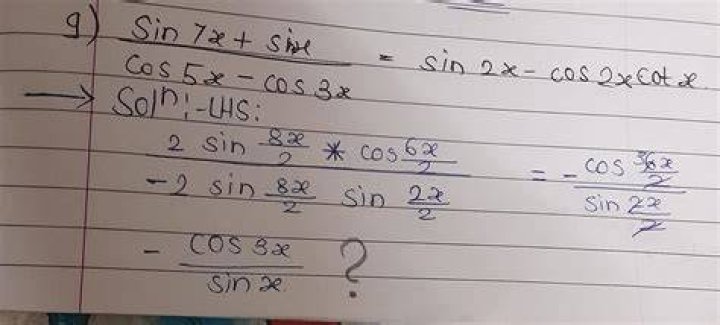 9) (sin 7x + sin x) / (cos 5x - cos 3x) = sin 2x - cos 2x cot x
→ Solⁿ:- LHS:
(2 sin 8x/2 * cos 6x/2) / (-2 sin 8x/2 sin 2x/2) = - (cos 6x/2) / (sin 2x/2)
- cos 3x / sin x ?